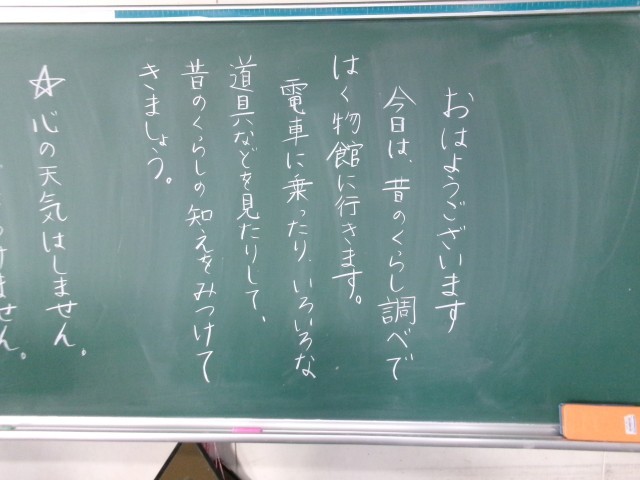 おはようございます
今日は、昔のくらし調べで
はく物館に行きます。
電車に乗ったり、いろいろな
道具などを見たりして、
昔のくらしの知えをみつけて
きましょう。
☆心の天気はしません。
けません。